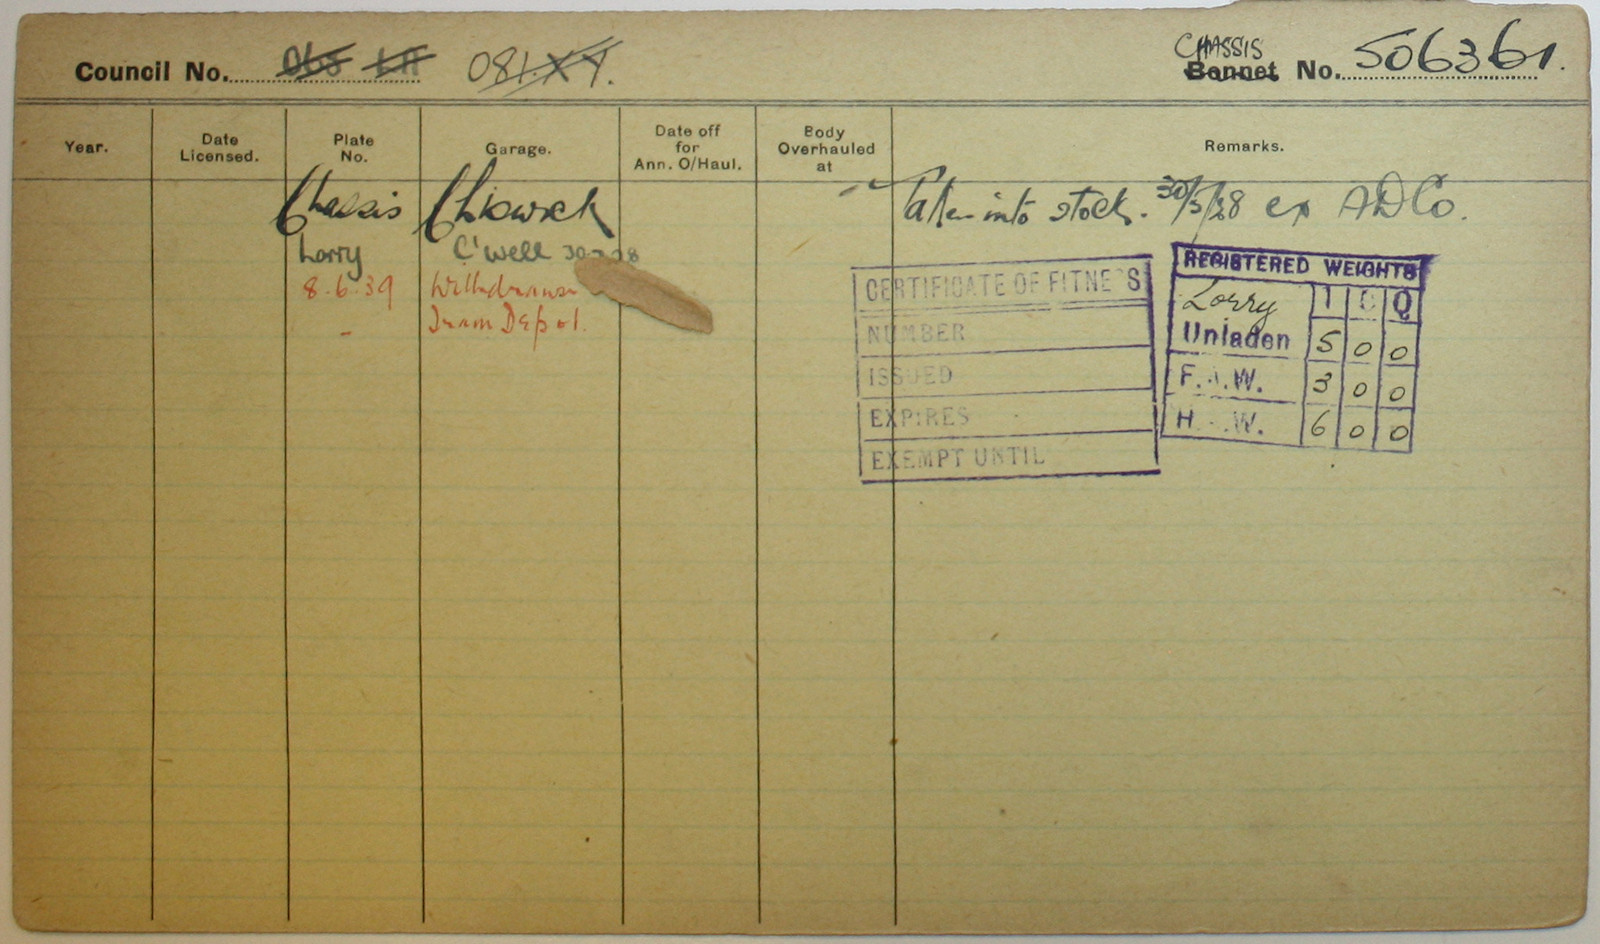 Council No. 081.XT.
CHASSIS
Bonnet No. 506361.
Year. Date Licensed. Plate No. Garage. Date off for Ann. O/Haul. Body Overhauled at Remarks.
Chassis Chiswick Taken into stock. 30/5/28 ex ADCo.
Lorry C'well
8.6.39 Withdrawn
Tram Depot.
CERTIFICATE OF FITNESS
NUMBER
ISSUED
EXPIRES
EXEMPT UNTIL
REGISTERED WEIGHTS
Lorry T C Q
Unladen 5 0 0
F.A.W. 3 0 0
H.A.W. 6 0 0